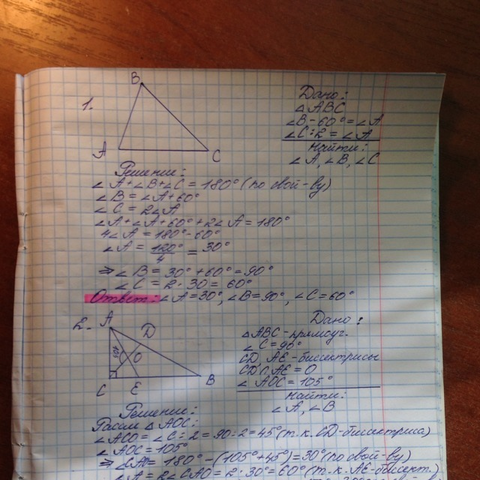 1.
B
A
C
Дано:
△ABC
∠B-60°=∠A
∠C:2=∠A
Найти:
∠A, ∠B, ∠C
Решение:
∠A+∠B+∠C=180° (по свой-ву)
∠B=∠A+60°
∠C=2∠A
∠A+∠A+60°+2∠A=180°
4∠A=180°-60°
∠A=120°/4=30°
⇒∠B=30°+60°=90°
∠C=2·30=60°
Ответ: ∠A=30°, ∠B=90°, ∠C=60°
2.
A
D
O
C
E
B
Дано:
△ABC-прямоуг.
∠C=90°
CD, AE-биссектрисы
CD∩AE=O
∠AOC=105°
Найти:
∠A, ∠B
Решение:
Рассм △AOC:
∠ACO=∠C:2=90:2=45° (т.к. CD-биссектриса)
∠AOC=105°
180°-(105°+45°)=30° (по свой-ву)
∠A=2∠CAO=2·30°=60° (т.к. AE-биссект.)